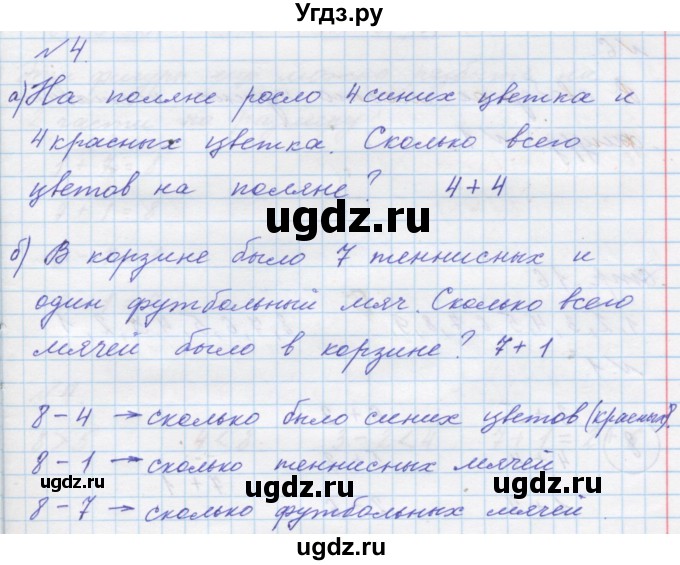 Угдз.ру
№4.
а) На поляне росло 4 синих цветка и
4 красных цветка. Сколько всего
цветов на поляне? 4+4
ugdz.ru
ugdz.ru
б) В корзине было 7 теннисных и
один футбольный мяч. Сколько всего
мячей было в корзине? 7+1
ugdz.ru
ugdz.ru
8-4 → сколько было синих цветов (красных)?
8-1 → сколько теннисных мячей
ugdz.ru
ugdz.ru
ugdz.ru
8-7 → сколько футбольных мячей.
ugdz.ru